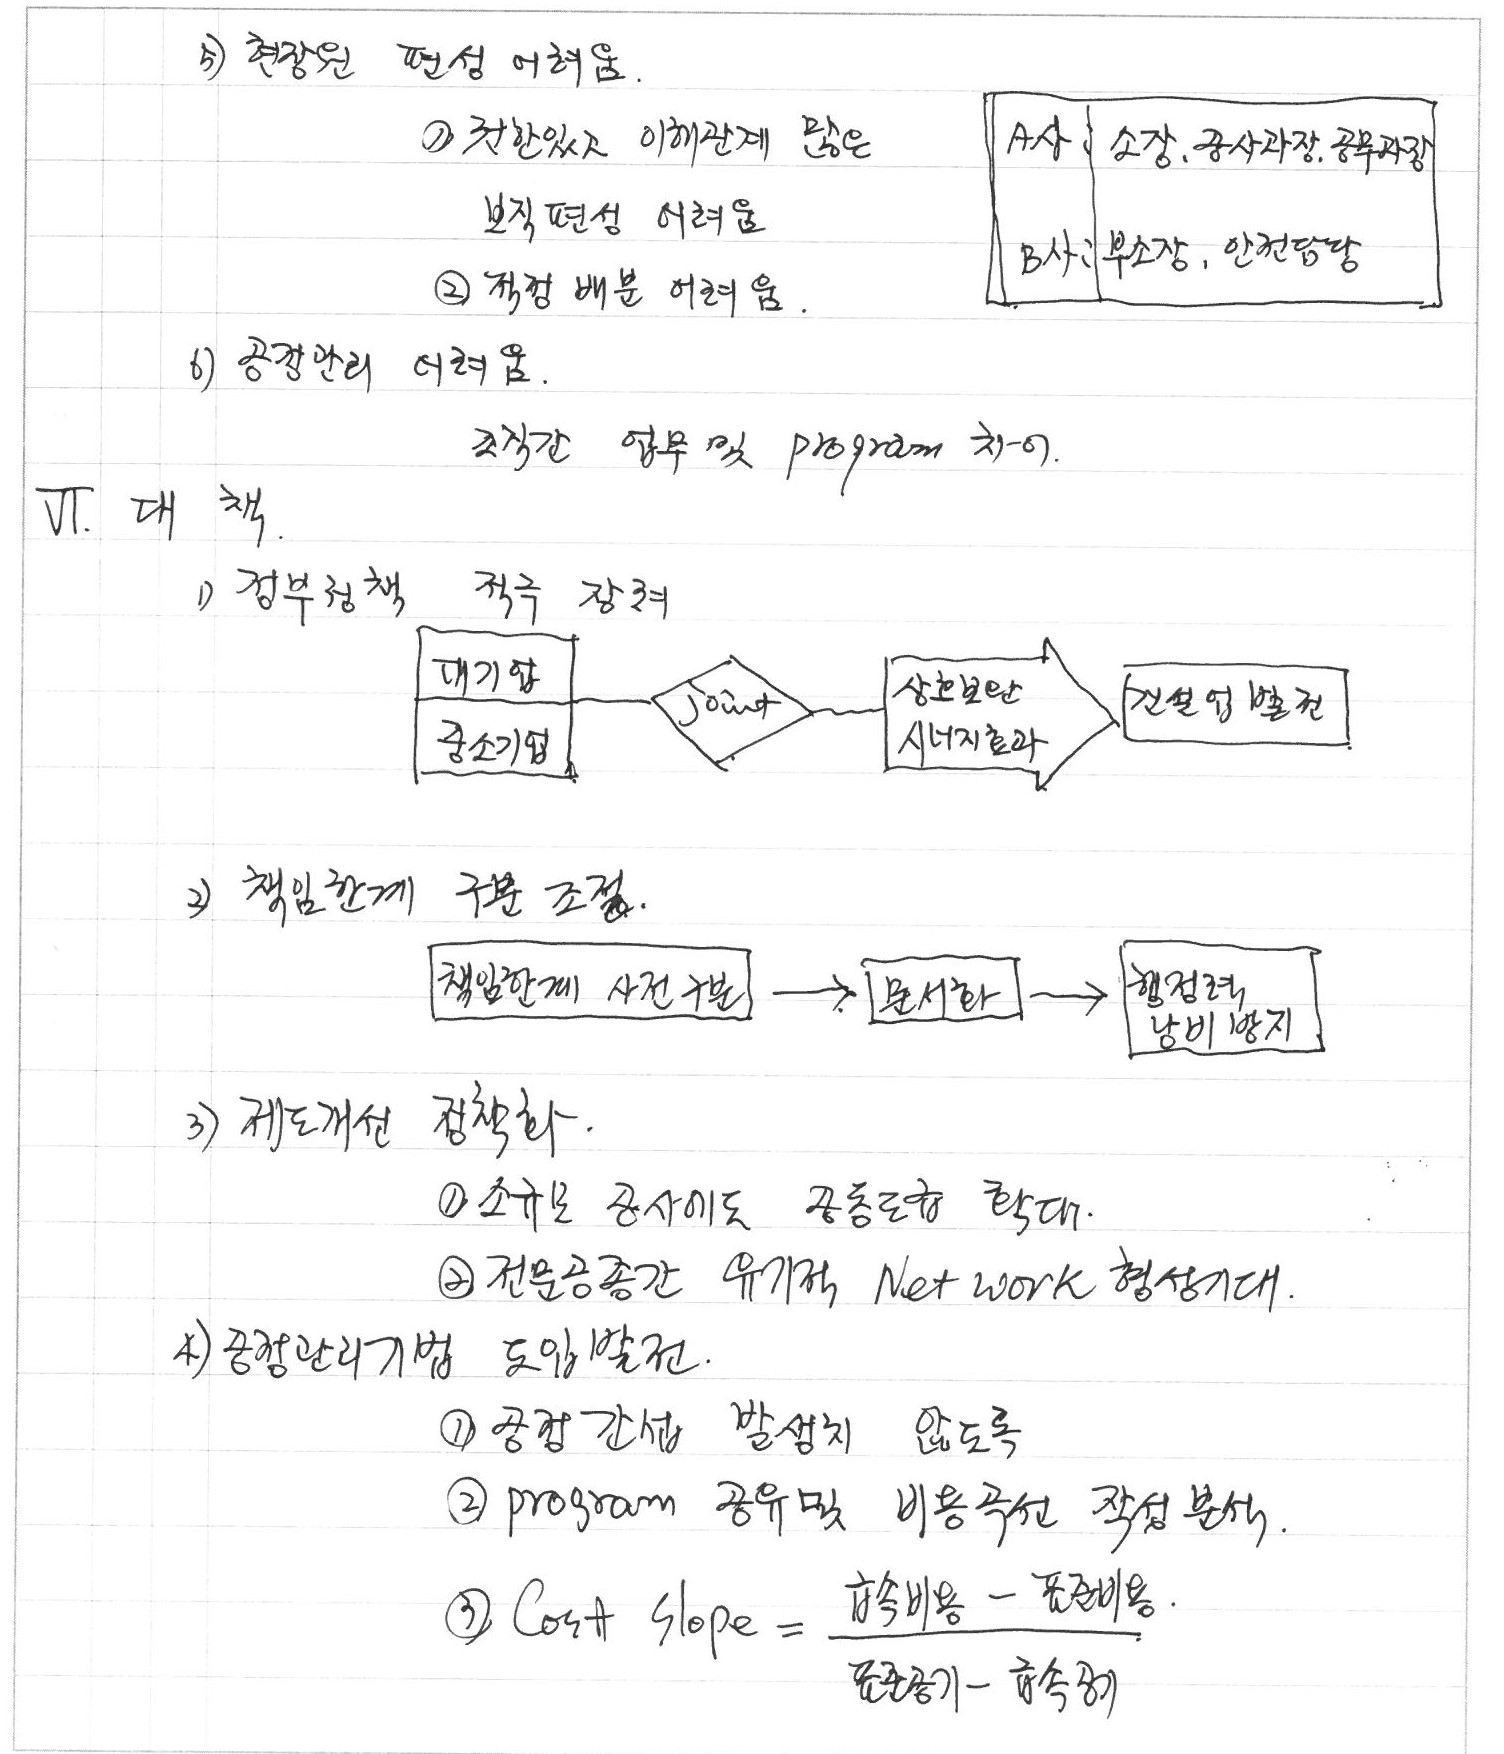 5) 현장원 편성 어려움.
① 권한있고 이해관계 많은
보직편성 어려움
② 적정 배분 어려움.
A사: 소장, 공사과장, 공무과장
B사: 부소장, 안전담당
6) 공정관리 어려움.
조직간 업무 및 program 차이.
VI. 대책.
1) 정부정책 적극 장려
대기업
중소기업
joint
상호보완
시너지효과
건설업 발전
2) 책임한계 구분 조절.
책임한계 사전 구분 → 문서화 → 행정력
낭비방지
3) 제도개선 정착화.
① 소규모 공사에도 공동도급 확대.
② 전문공종간 유기적 Network 형성기대.
4) 공정관리기법 도입발전.
① 공정간섭 발생치 않도록
② program 공유 및 비용곡선 작성 분석.
③ Cost Slope = 급속비용 - 표준비용.
표준공기 - 급속공기